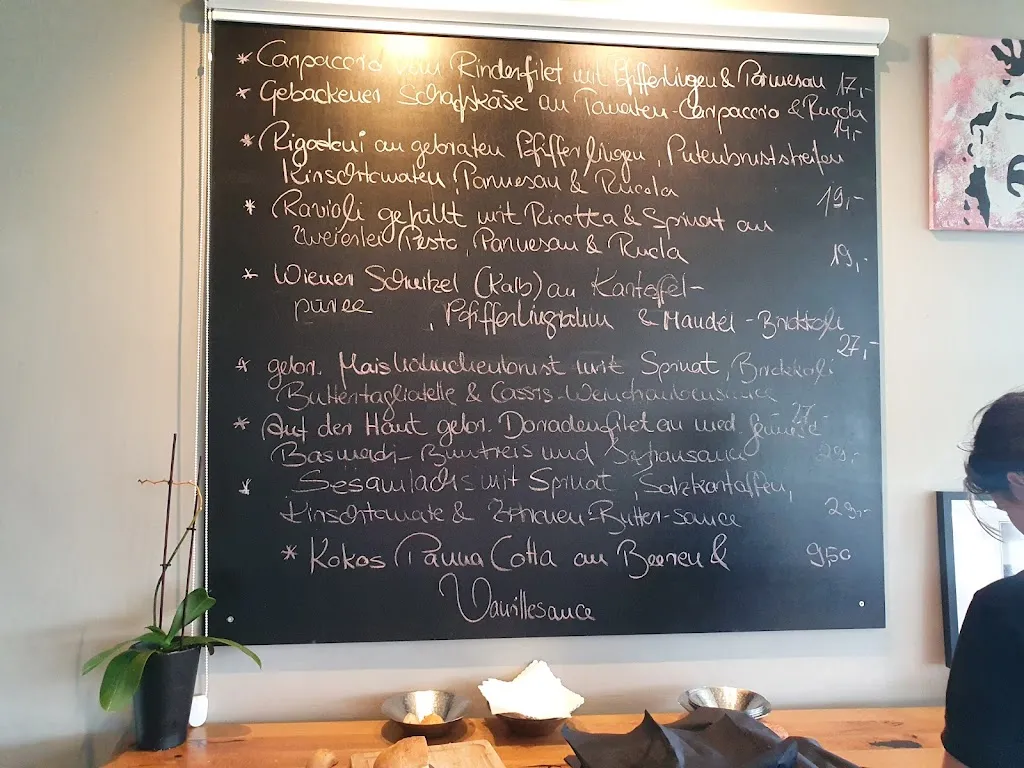 * Carpaccio vom Rinderfilet mit Pfifferlingen & Parmesan 17,-
* Gebackener Schafskäse an Tomaten-Carpaccio & Rucola
14,-
* Rigatoni an gebraten Pfifferlingen, Putenbruststreifen
Kirschtomaten, Parmesan & Rucola
19,-
* Ravioli gefüllt mit Ricotta & Spinat an
zweierlei Pesto, Parmesan & Rucla
19,-
* Wiener Schnitzel (Kalb) an Kartoffel-
püree , Pfifferlingrahm & Mandel-Brokkoli
27,-
* gebr. Maishähnchenbrust mit Spinat, Brokkoli
Buttertagliatelle & Cassis-
27,-
* Auf der Haut gebr. Doradenfilet an med. Gemüse
Basmati- und Safransauce 29,-
* Sesamlachs mit Spinat, Salzkartoffen,
Kirschtomate & Zitronen-Butter-sauce 29,-
* Kokos Panna Cotta an Beeren & 9,50
Vanillesauce